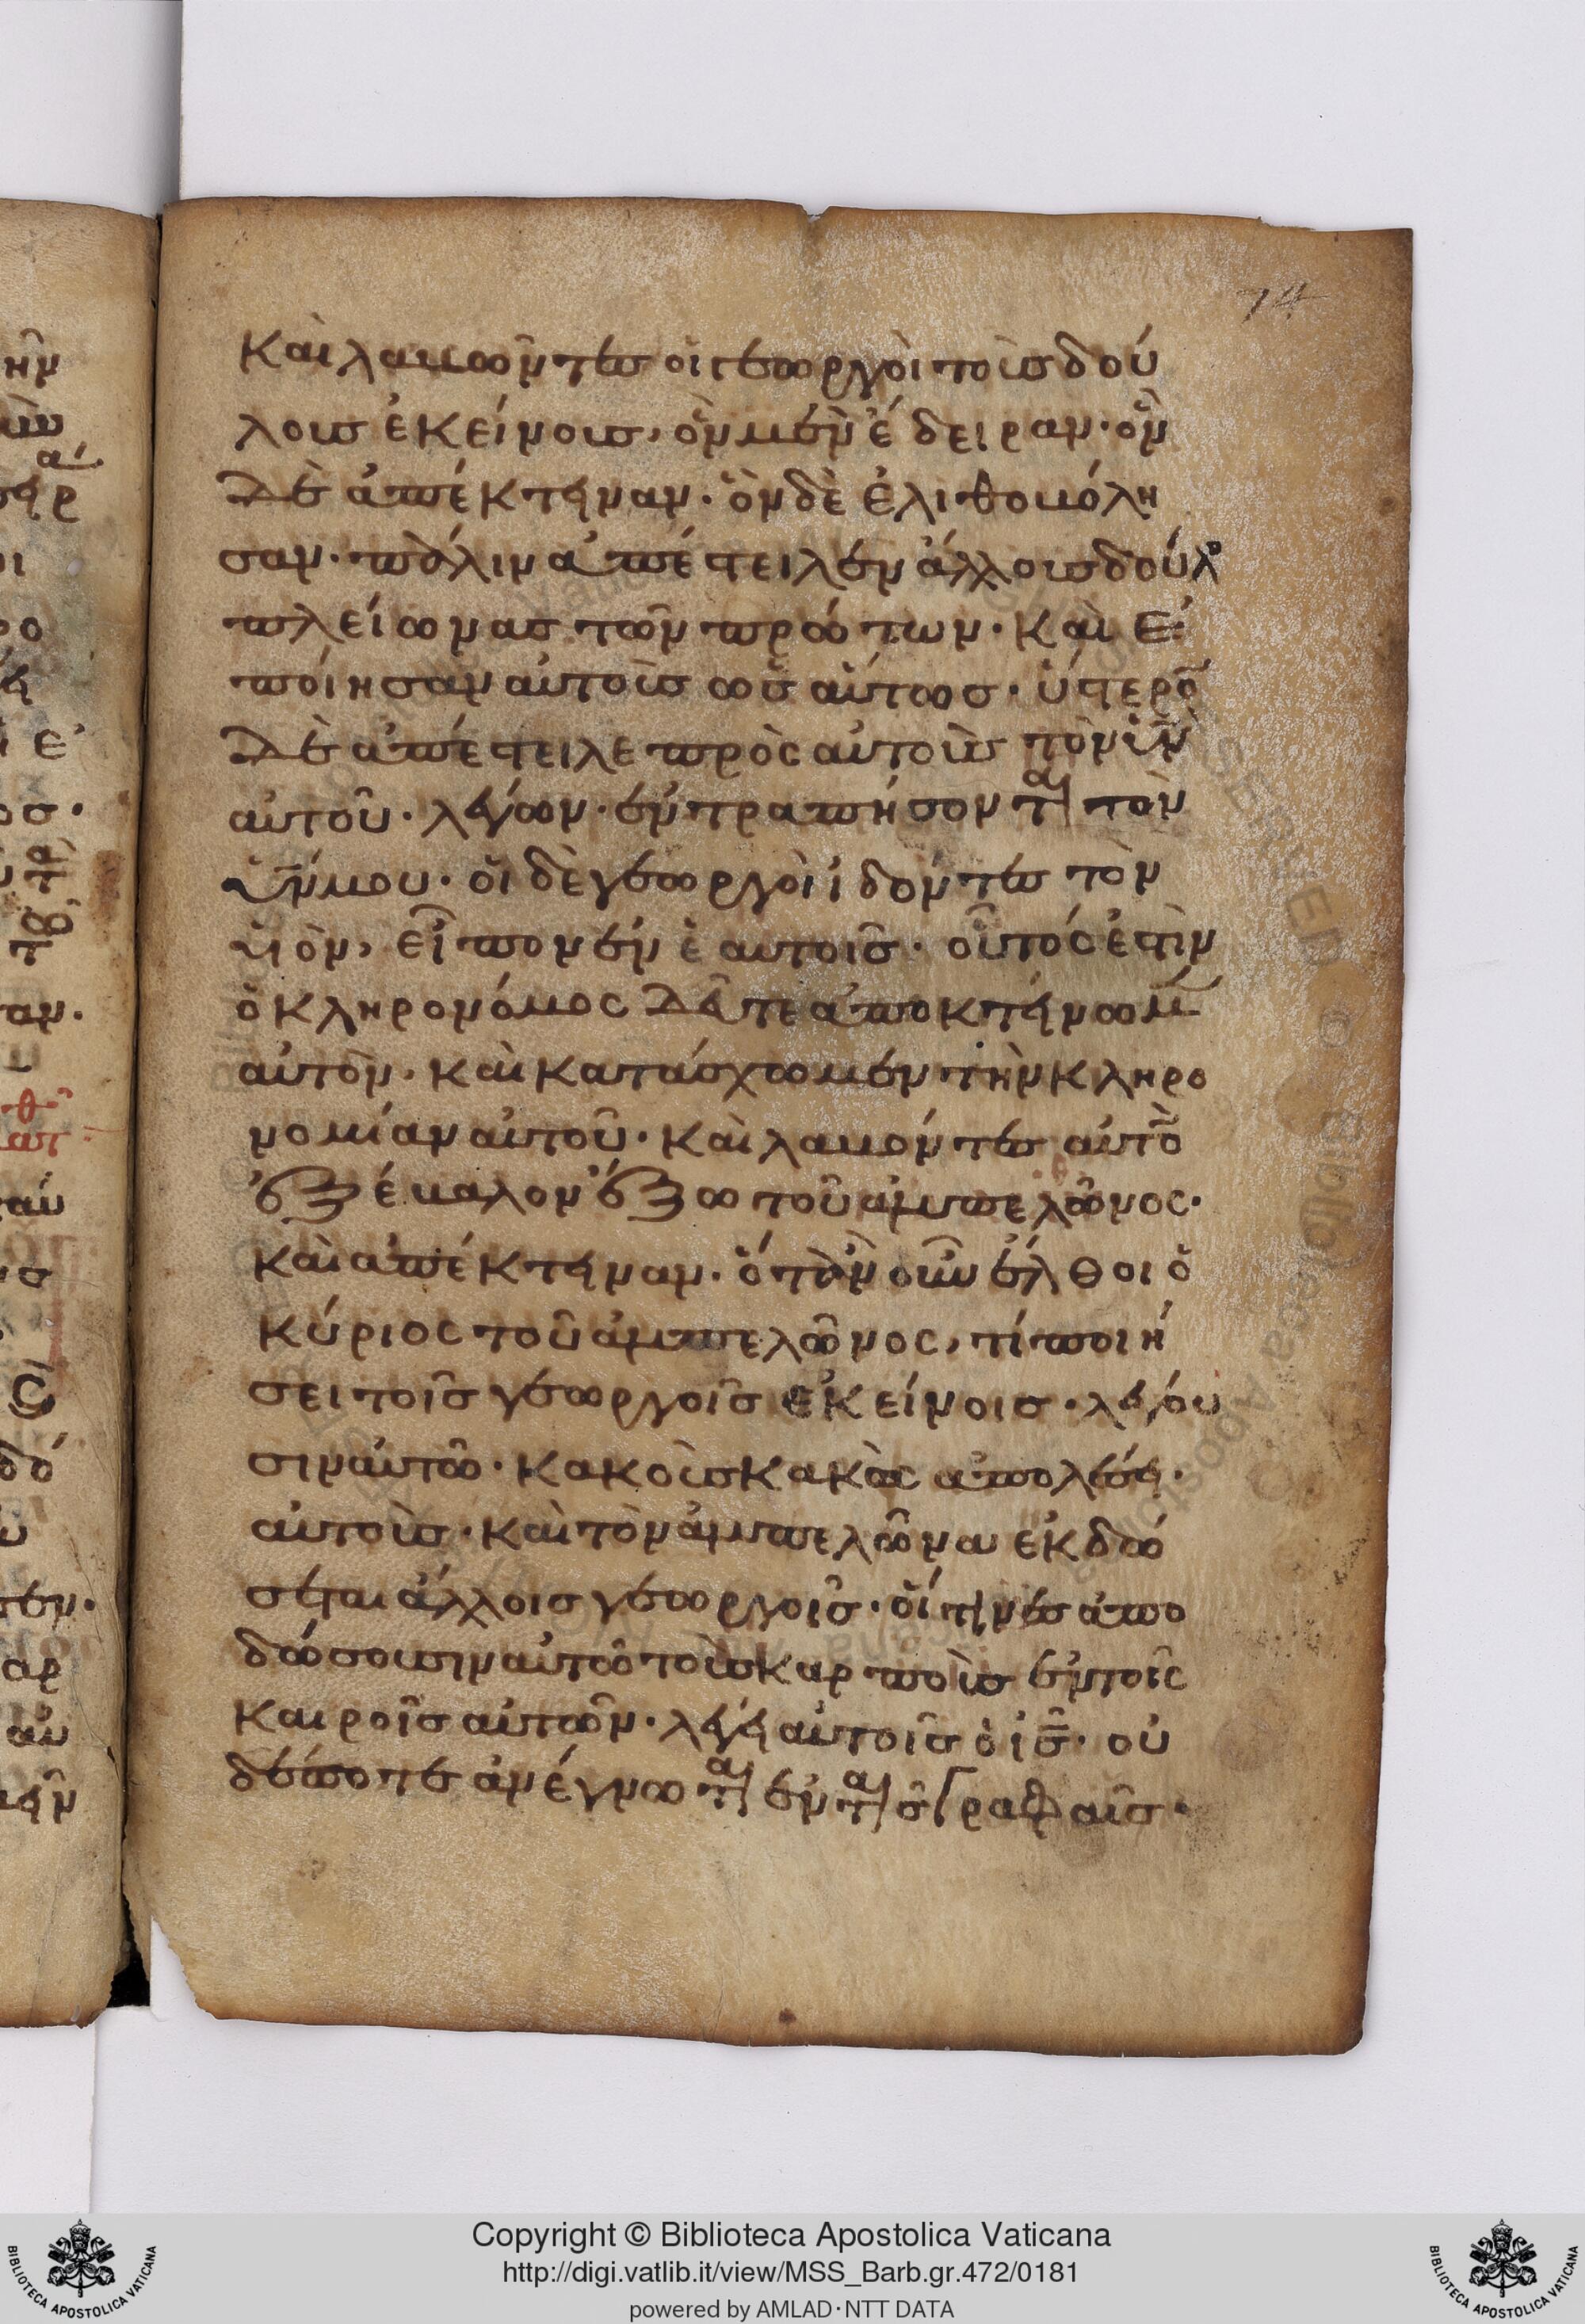 74
Καὶ λαβῶντες οἱ γεωργοὶ τοὺς δού
λους ἐκείνους, ὃν μὲν ἔδειραν· ὃν
δὲ ἀπέκτειναν· ὃν δὲ ἐλιθοβόλη
σαν· πάλιν ἀπέστειλεν ἄλλους δούλ
πλείωνας τῶν πρώτων· καὶ ἐ
ποίησαν αὐτοὺς ὡσαύτως· ὕστερον
δὲ ἀπέστειλε πρὸς αὐτοὺς τὸν υἱὸν
αὐτοῦ· λέγων· ἐντραπήσονται τὸν
υἱόν μου· οἱ δὲ γεωργοὶ ἰδόντες τὸν
υἱὸν, εἶπον ἐν ἑαυτοῖς· οὗτός ἐστὶν
ὁ κληρονόμος δεῦτε ἀποκτείνωμεν
αὐτὸν· καὶ κατάσχωμεν τὴν κληρο
νομίαν αὐτοῦ· καὶ λαβόντες αὐτὸν
ἐξέβαλον ἔξω τοῦ ἀμπελῶνος·
καὶ ἀπέκτειναν· ὅταν οὖν ἔλθοι ὁ
κύριος τοῦ ἀμπελῶνος, τί ποιή
σει τοῖς γεωργοῖς ἐκείνοις· λέγου
σιν αὐτῶ· κακοὺς κακὰς ἀπολέσει·
αὐτοὺς· καὶ τὸν ἀμπελῶνα ἐκδώ
σεται ἄλλοις γεωργοῖς· οἵτινες ἀπο
δώσουσιν αὐτῶ τοὺς καρποὺς ἐν τοῖς
καιροῖς αὐτῶν· λέγει αὐτοῖς ὁ ις· οὐ
δέποτε ἀνέγνωται ἐν ταῖς γραφαῖς·
Copyright © Biblioteca Apostolica Vaticana
http://digi.vatlib.it/view/MSS_Barb.gr.472/0181
powered by AMLAD·NTT DATA
BIBLIOTECA APOSTOLICA VATICANA
BIBLIOTECA APOSTOLICA VATICANA